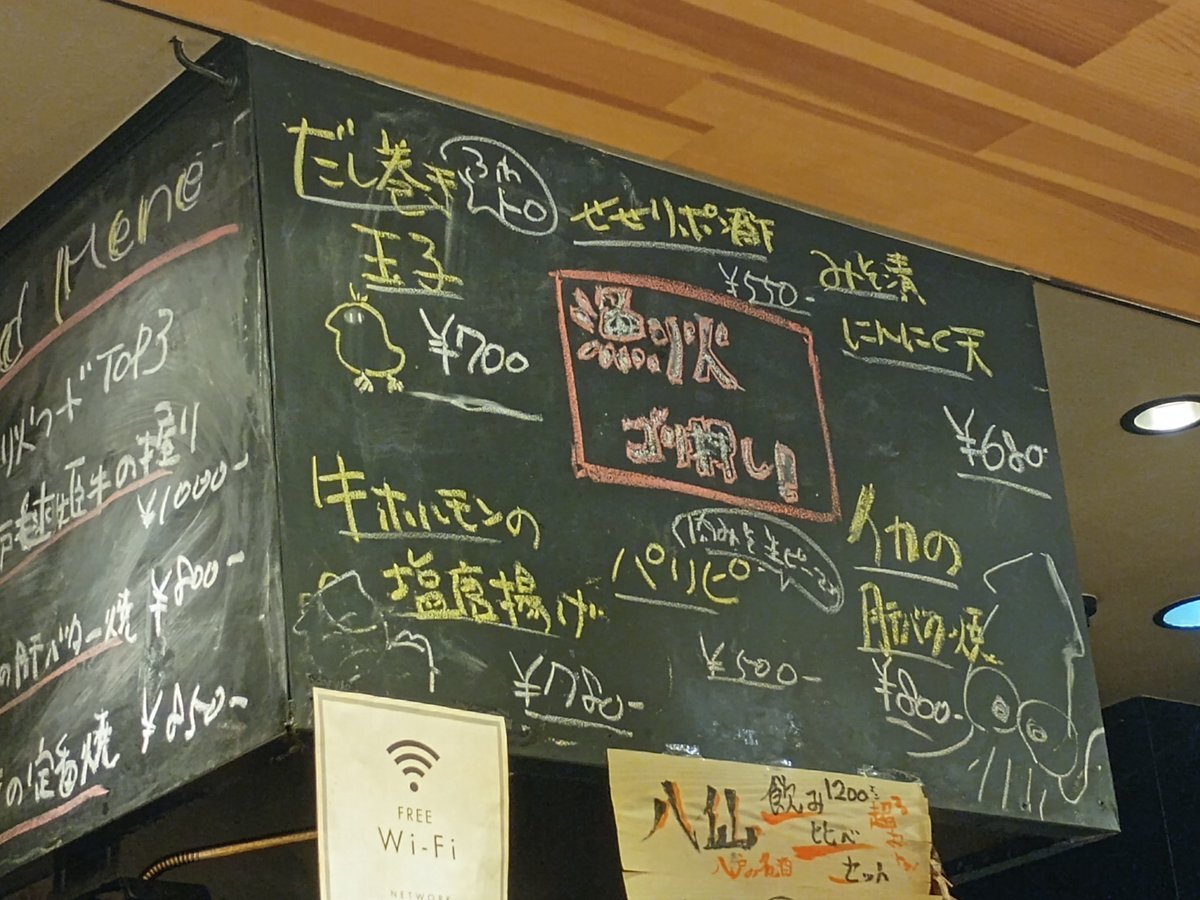 Mene
火フード TOP3
姫牛の握り
¥1000-
の肝バター焼
¥800-
の定番焼
¥850-
だし巻き
玉子
¥700
せせりポン酢
¥550-
みそ漬
にんにく天
¥680-
漁火
ゴリ押し!
牛ホルモンの
塩唐揚げ
¥780-
パリピ
¥500-
イカの
肝バター焼
¥800-
FREE
Wi-Fi
NETWORK
八仙
飲み
比べ
セット
1200
八戸の名酒